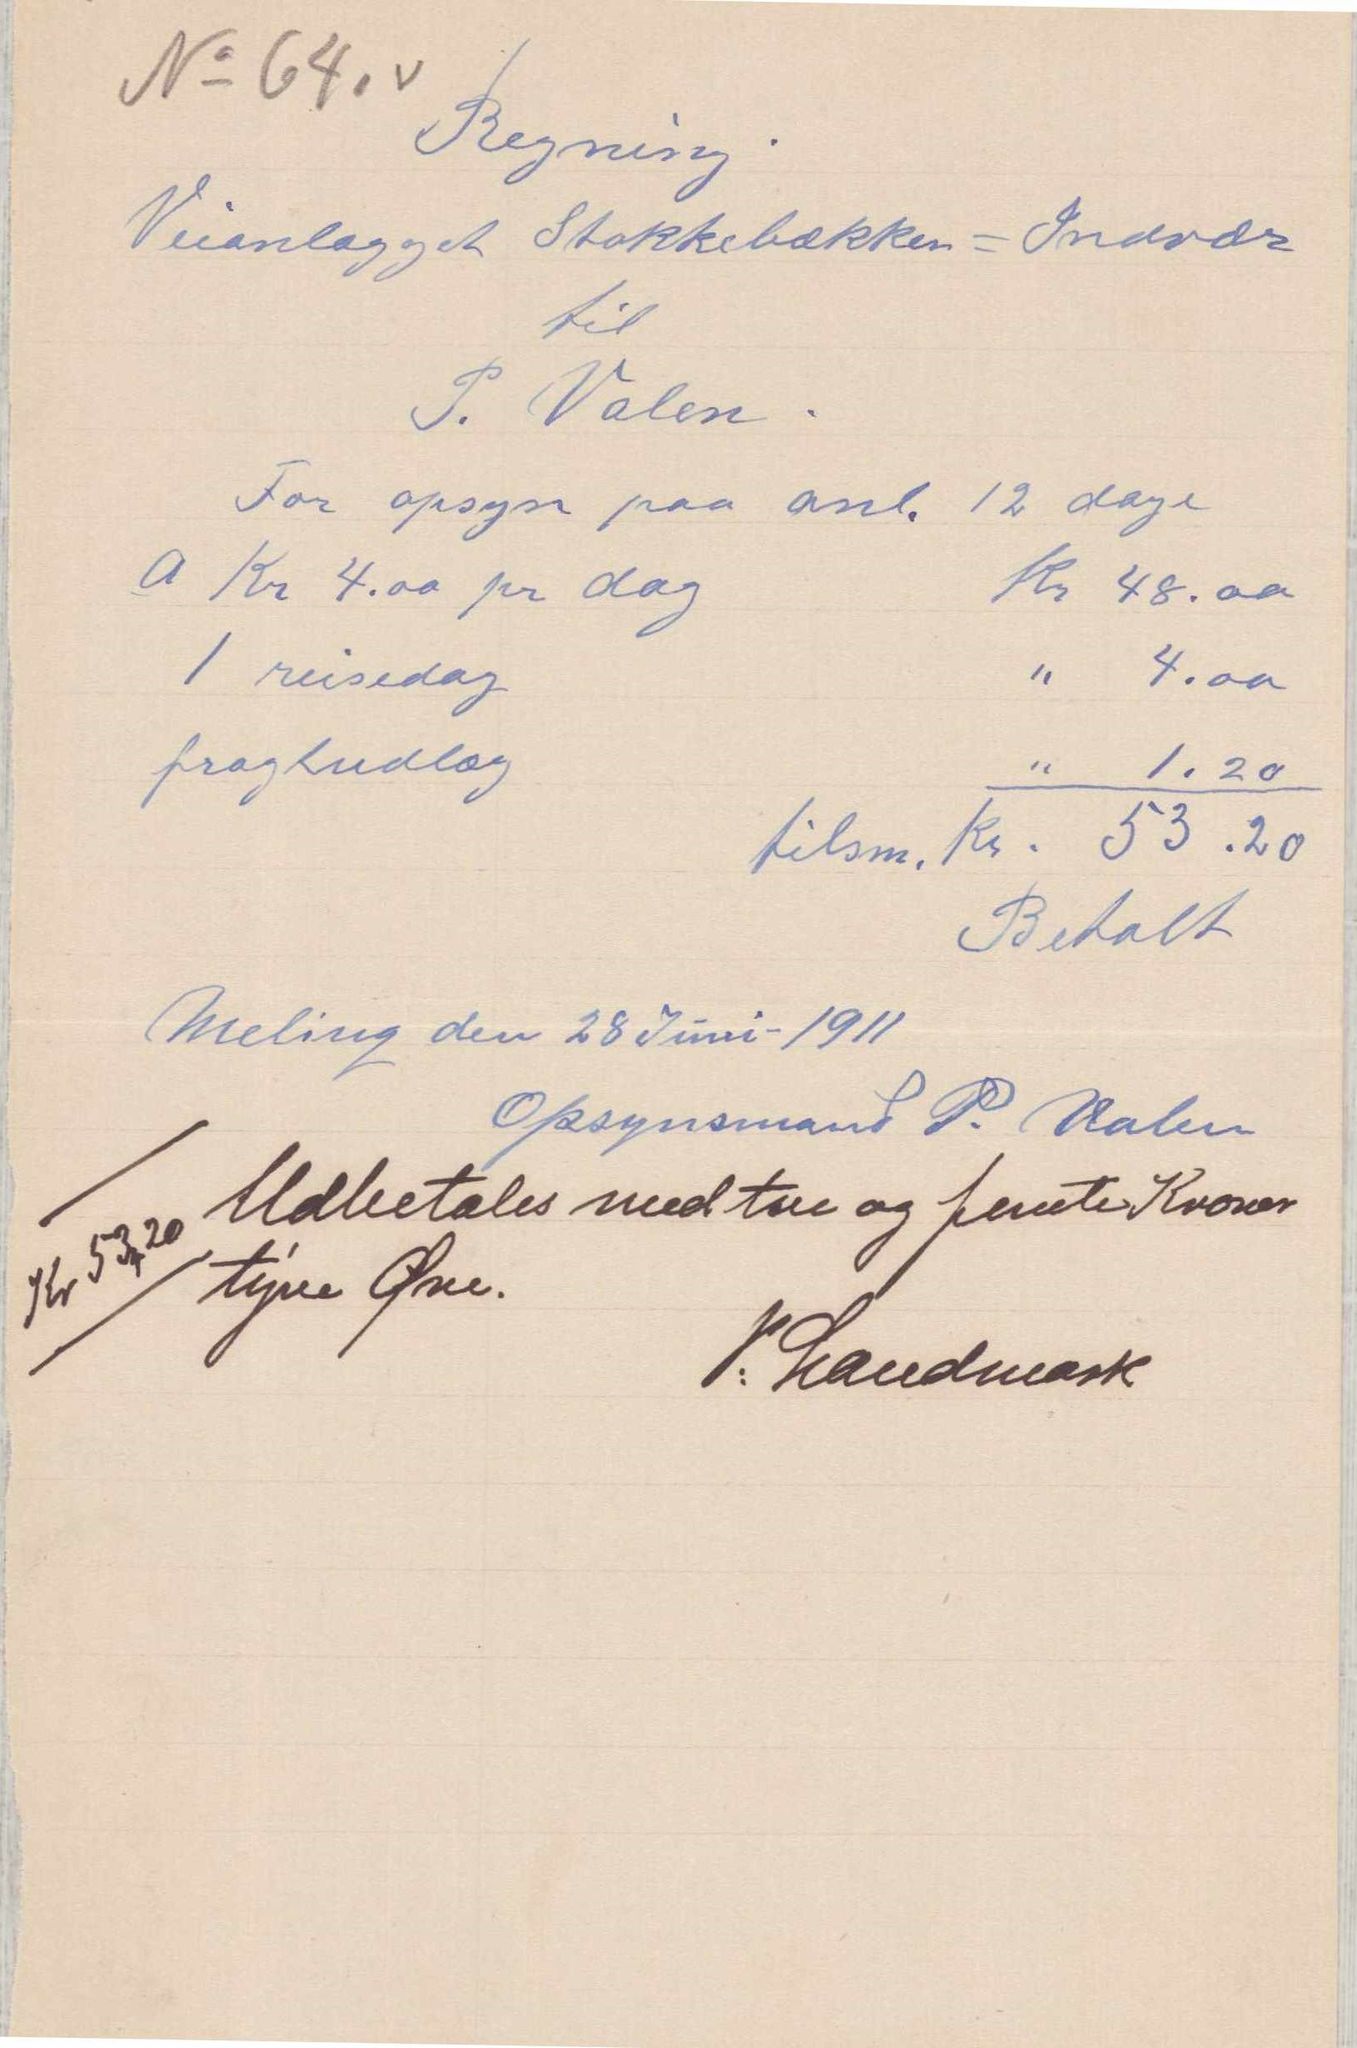 No 64. v
Regning.
Veianlægget Stokkebækken = Indvær
til
P. Valen.
For opsyn paa anl. 12 dage
a Kr 4.00 pr dag Kr 48.00
1 reisedag " 4.00
fragtudlæg " 1.20
tilsm. Kr. 53.20
Betalt
Meling den 28 Juni - 1911
Opsynsmand P. Valen
Udbetales med tre og femti Kroner
Kr 53,20 tyve Øre.
P. Landmark